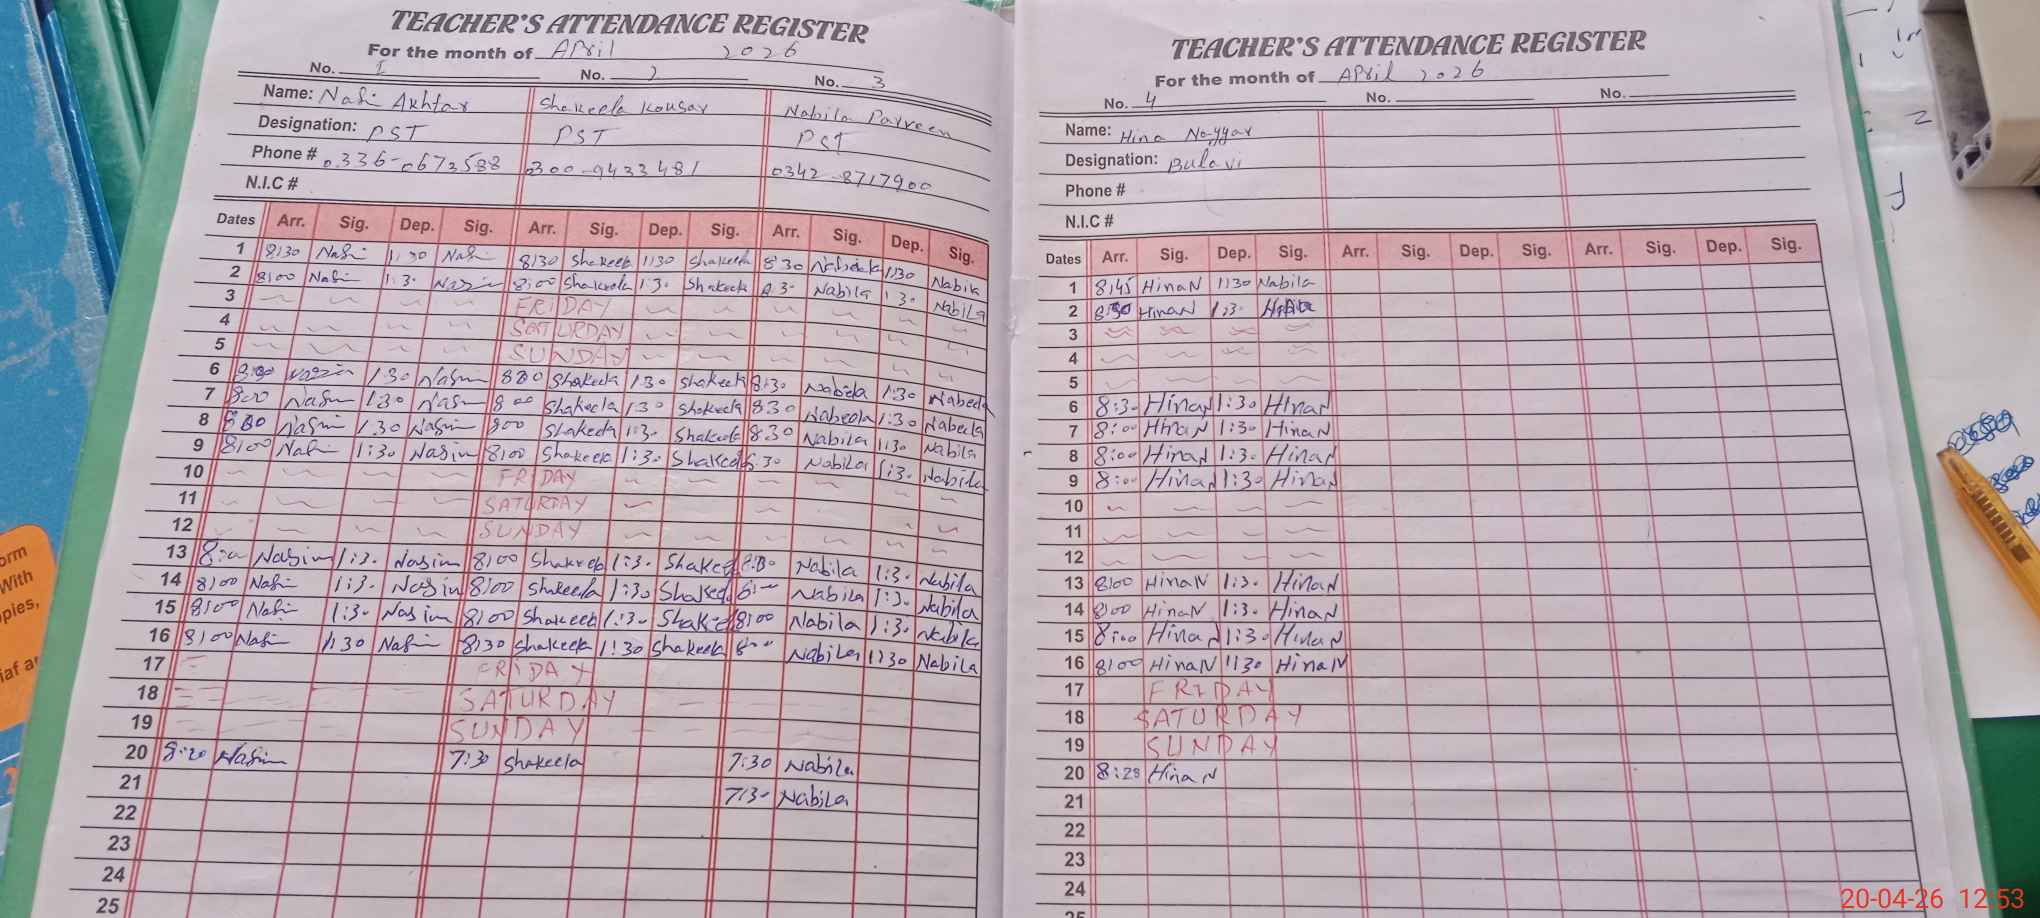 TEACHER'S ATTENDANCE REGISTER
For the month of April 2026
No. 1 No. 2 No. 3
Name: Nasim Akhtar Shakeela Kousar Nabila Parveen
Designation: PST PST PST
Phone # 0336-0673588 0300-9433481 0342-8717900
N.I.C #
Dates Arr. Sig. Dep. Sig. Arr. Sig. Dep. Sig. Arr. Sig. Dep. Sig.
1 8:30 Nasim 1:30 Nasim 8:30 Shakeela 1:30 Shakeela 8:30 Nabeela 1:30 Nabila
2 8:00 Nasim 1:30 Nasim 8:00 Shakeela 1:30 Shakeela 8:30 Nabila 1:30 Nabila
3 FRIDAY
4 SATURDAY
5 SUNDAY
6 Nasim 1:30 Nasim 800 Shakeela 1:30 Shakeela 8:30 Nabeela 1:30 Nabeela
7 8:00 Nasim 1:30 Nasim 8 00 Shakeela 1:30 Shakeela 8:30 Nabeela 1:30 Nabeela
8 800 Nasim 1:30 Nasim 800 Shakeela 1:30 Shakeela 8:30 Nabila 1:30 Nabila
9 8:00 Nasim 1:30 Nasim 8:00 Shakeela 1:30 Shakeela 8:30 Nabila 1:30 Nabila
10 FRIDAY
11 SATURDAY
12 SUNDAY
13 8:00 Nasim 1:30 Nasim 8:00 Shakeela 1:30 Shakeela Nabila 1:30 Nabila
14 8:00 Nasim 1:30 Nasim 8:00 Shakeela 1:30 Shakeela Nabila 1:30 Nabila
15 8:00 Nasim 1:30 Nasim 8:00 Shakeela 1:30 Shakeela 8:00 Nabila 1:30 Nabila
16 8:00 Nasim 1:30 Nasim 8:30 Shakeela 1:30 Shakeela Nabila 1:30 Nabila
17 FRIDAY
18 SATURDAY
19 SUNDAY
20 8:20 Nasim 7:30 Shakeela 7:30 Nabila
21 7:30 Nabila
22
23
24
25
TEACHER'S ATTENDANCE REGISTER
For the month of April 2026
No. 4 No. No.
Name: Hina Nayyar
Designation: Bulavi
Phone #
N.I.C #
Dates Arr. Sig. Dep. Sig. Arr. Sig. Dep. Sig. Arr. Sig. Dep. Sig.
1 8:45 HinaN 1:30 Nabila
2 HinaN 1:30
3
4
5
6 8:30 HinaN 1:30 HinaN
7 8:00 HinaN 1:30 HinaN
8 8:00 HinaN 1:30 HinaN
9 8:00 HinaN 1:30 HinaN
10
11
12
13 8:00 HinaN 1:30 HinaN
14 8:00 HinaN 1:30 HinaN
15 8:00 HinaN 1:30 HinaN
16 8:00 HinaN 1:30 HinaN
17 FRIDAY
18 SATURDAY
19 SUNDAY
20 8:28 HinaN
21
22
23
24
25
orm
With
opies,
20-04-26 12:53